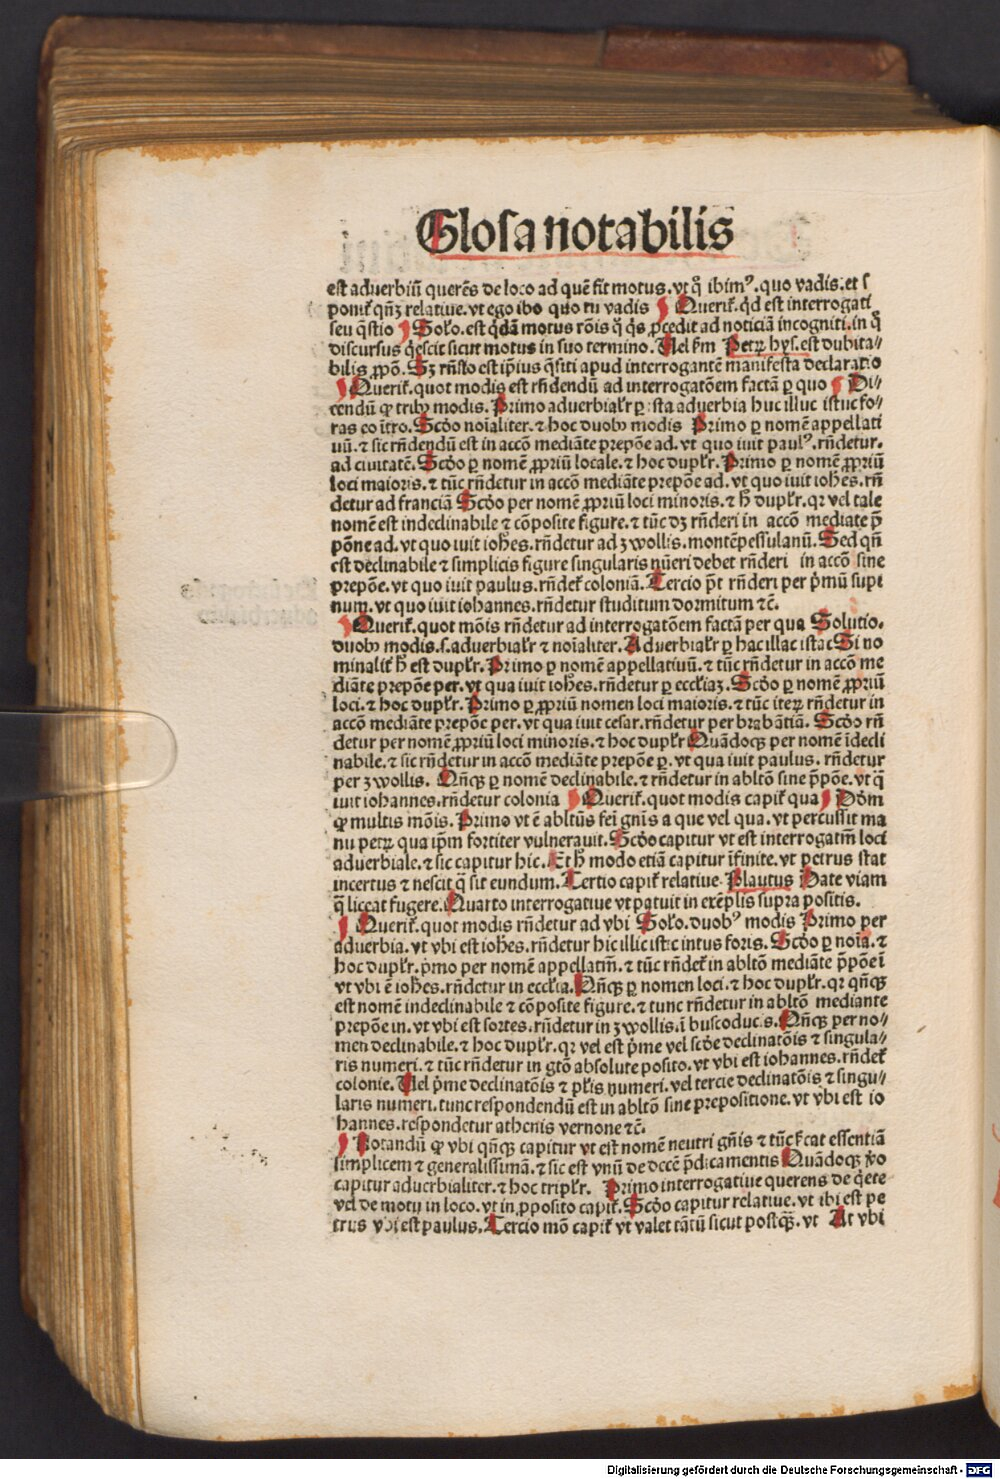 Glosa notabilis
est aduerbiū querēs de loco ad quē fit motus. vt q̄ ibimꝰ. quo vadis. et s
ponit᷑ qn̄ꝫ relatiue. vt ego ibo quo tu vadis Querit᷑. qͥd est interrogati
seu q̄stio Soło. est qͥdā motus rōis q̄ qͥs ꝓcedit ad noticiā incogniti. in q̄
discursus qͥescit sicut motus in suo termino. Vel ẜm Petrꝝ hys. est dubita⸗
bilis ꝓpō. Sꝫ rn̄sło est ip̄ius q̄siti apud interrogantē manifesta declaratio
Querit᷑. quot modis est rn̄dendū ad interrogatōem factā ꝑ quo Di⸗
cendū ꝙ tribꝰ modis. Primo aduerbialr̄ ꝑ ista aduerbia huc illuc istuc fo⸗
ras eo ītro. Scd̄o noīaliter. ⁊ hoc duobꝰ modis Primo ꝑ nomē appellati
uū. ⁊ sic rn̄dendū est in accō mediāte prepōe ad. vt quo iuit paulꝰ. rn̄detur.
ad ciuitatē. Scd̄o ꝑ nomē ꝓpriū locale. ⁊ hoc duplr̄. Primo ꝑ nomē ꝓpriū
loci maioris. ⁊ tūc rn̄detur in accō mediāte prepōe ad. vt quo iuit ioh̄es. rn̄
detur ad franciā Scd̄o per nomē ꝓpriū loci minoris. ⁊ h̄ duplr̄. qr vel tale
nomē est indeclinabile ⁊ cōposite figure. ⁊ tūc dꝫ rn̄deri in accō mediate p̄
pōne ad. vt quo iuit ioh̄es. rn̄detur ad ʒwollis. montēpessulanū. Sed qn̄
est declinabile ⁊ simplicis figure singularis nūeri debet rn̄deri in accō sine
prepōe. vt quo iuit paulus. rn̄det᷑ coloniā. Tercio p̄t rn̄deri per pͥmū supi
num. vt quo iuit iohannes. rn̄detur studitum dormitum ⁊c̄.
Querit᷑. quot mōis rn̄detur ad interrogatōem factā per qua Solutio.
duobꝰ modis. s. aduerbialr̄ ⁊ noīaliter. Aduerbialr̄ ꝑ hac illac istac Si no
minalit᷑ h̄ est duplr̄. Primo ꝑ nomē appellatiuū. ⁊ tūc rn̄detur in accō me
diāte prepōe per. vt qua iuit ioh̄es. rn̄detur ꝑ eccłiaꝫ. Scd̄o ꝑ nomē ꝓpriū
loci. ⁊ hoc duplr̄. Primo ꝑ ꝓpriū nomen loci maioris. ⁊ tūc iteꝝ rn̄detur in
accō mediāte prepōe per. vt qua iuit cesar. rn̄detur per brabātiā. Scd̄o rn̄
detur per nomē ꝓpriū loci minoris. ⁊ hoc duplr̄ Quādocꝫ per nomē īdecli
nabile. ⁊ sic rn̄detur in accō mediāte prepōe ꝑ. vt qua iuit paulus. rn̄detur
per ʒwollis. Qn̄qꝫ ꝑ nomē declinabile. ⁊ rn̄detur in abltō sine p̄pōe. vt q̄
iuit iohannes. rn̄detur colonia Querit᷑. quot modis capit᷑ qua Dōm
ꝙ multis mōis. Primo vt ē abltūs fei gn̄is a que vel qua. vt percussit ma
nu petrꝝ qua ip̄m fortiter vulnerauit. Scd̄o capitur vt est interrogatm̄ loci
aduerbiale. ⁊ sic capitur hic. Et h̄ modo etiā capitur īfinite. vt petrus stat
incertus ⁊ nescit q̄ sit eundum. Tertio capit᷑ relatiue. Plautus Date viam
q̄ liceat fugere. Quarto interrogatiue vt patuit in exēplis supra positis.
Querit᷑. quot modis rn̄detur ad vbi Soło. duobꝰ modis Primo per
aduerbia. vt vbi est ioh̄es. rn̄detur hic illic istic intus foris. Scd̄o ꝑ noīa. ⁊
hoc duplr̄. pͥmo per nomē appellatm̄. ⁊ tūc rn̄det᷑ in abltō mediāte p̄pōe ī
vt vbi ē ioh̄es. rn̄detur in eccłia. Qn̄qꝫ ꝑ nomen loci. ⁊ hoc duplr̄. qr qn̄qꝫ
est nomē indeclinabile ⁊ cōposite figure. ⁊ tunc rn̄detur in abltō mediante
prepōe in. vt vbi est sortes. rn̄detur in ʒwollis. ī buscoducis. Qn̄qꝫ per no⸗
men declinabile. ⁊ hoc duplr̄. qr vel est pͥme vel scd̄e declinatōis ⁊ singula⸗
ris numeri. ⁊ tūc rn̄detur in gtō absolute posito. vt vbi est iohannes. rn̄det᷑
colonie. Vel pͥme declinatōis ⁊ pl̄is numeri. vel tercie declinatōis ⁊ singu⸗
laris numeri. tunc respondendū est in abltō sine prepositione. vt vbi est io
hannes. respondetur athenis vernone ⁊c̄.
Notandū ꝙ vbi qn̄qꝫ capitur vt est nomē neutri gn̄is ⁊ tūc s̄cat essentiā
simplicem ⁊ generalissimā. ⁊ sic est vnū de decē p̄dicamentis Quādocꝫ v̄o
capitur aduerbialiter. ⁊ hoc triplr̄. Primo interrogatiue querens de qͥete
vel de motu in loco. vt in ꝓposito capit᷑. Scd̄o capitur relatiue. vt ibi est pe
trus vbi est paulus. Tercio mō capit᷑ vt valet tātū sicut postqꝫ̄. vt At vbi
Digitalisierung gefördert durch die Deutsche Forschungsgemeinschaft - DFG